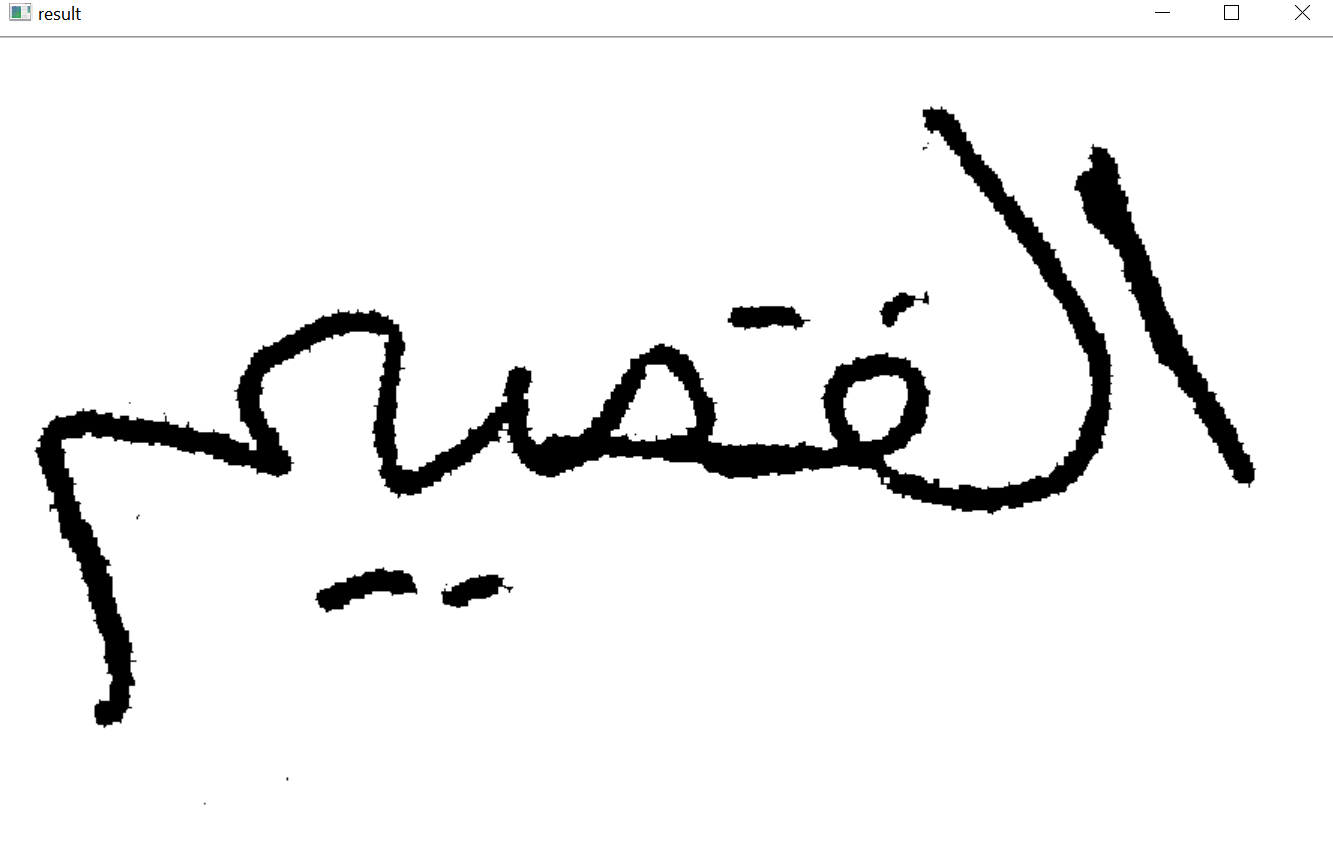 result
القصيم